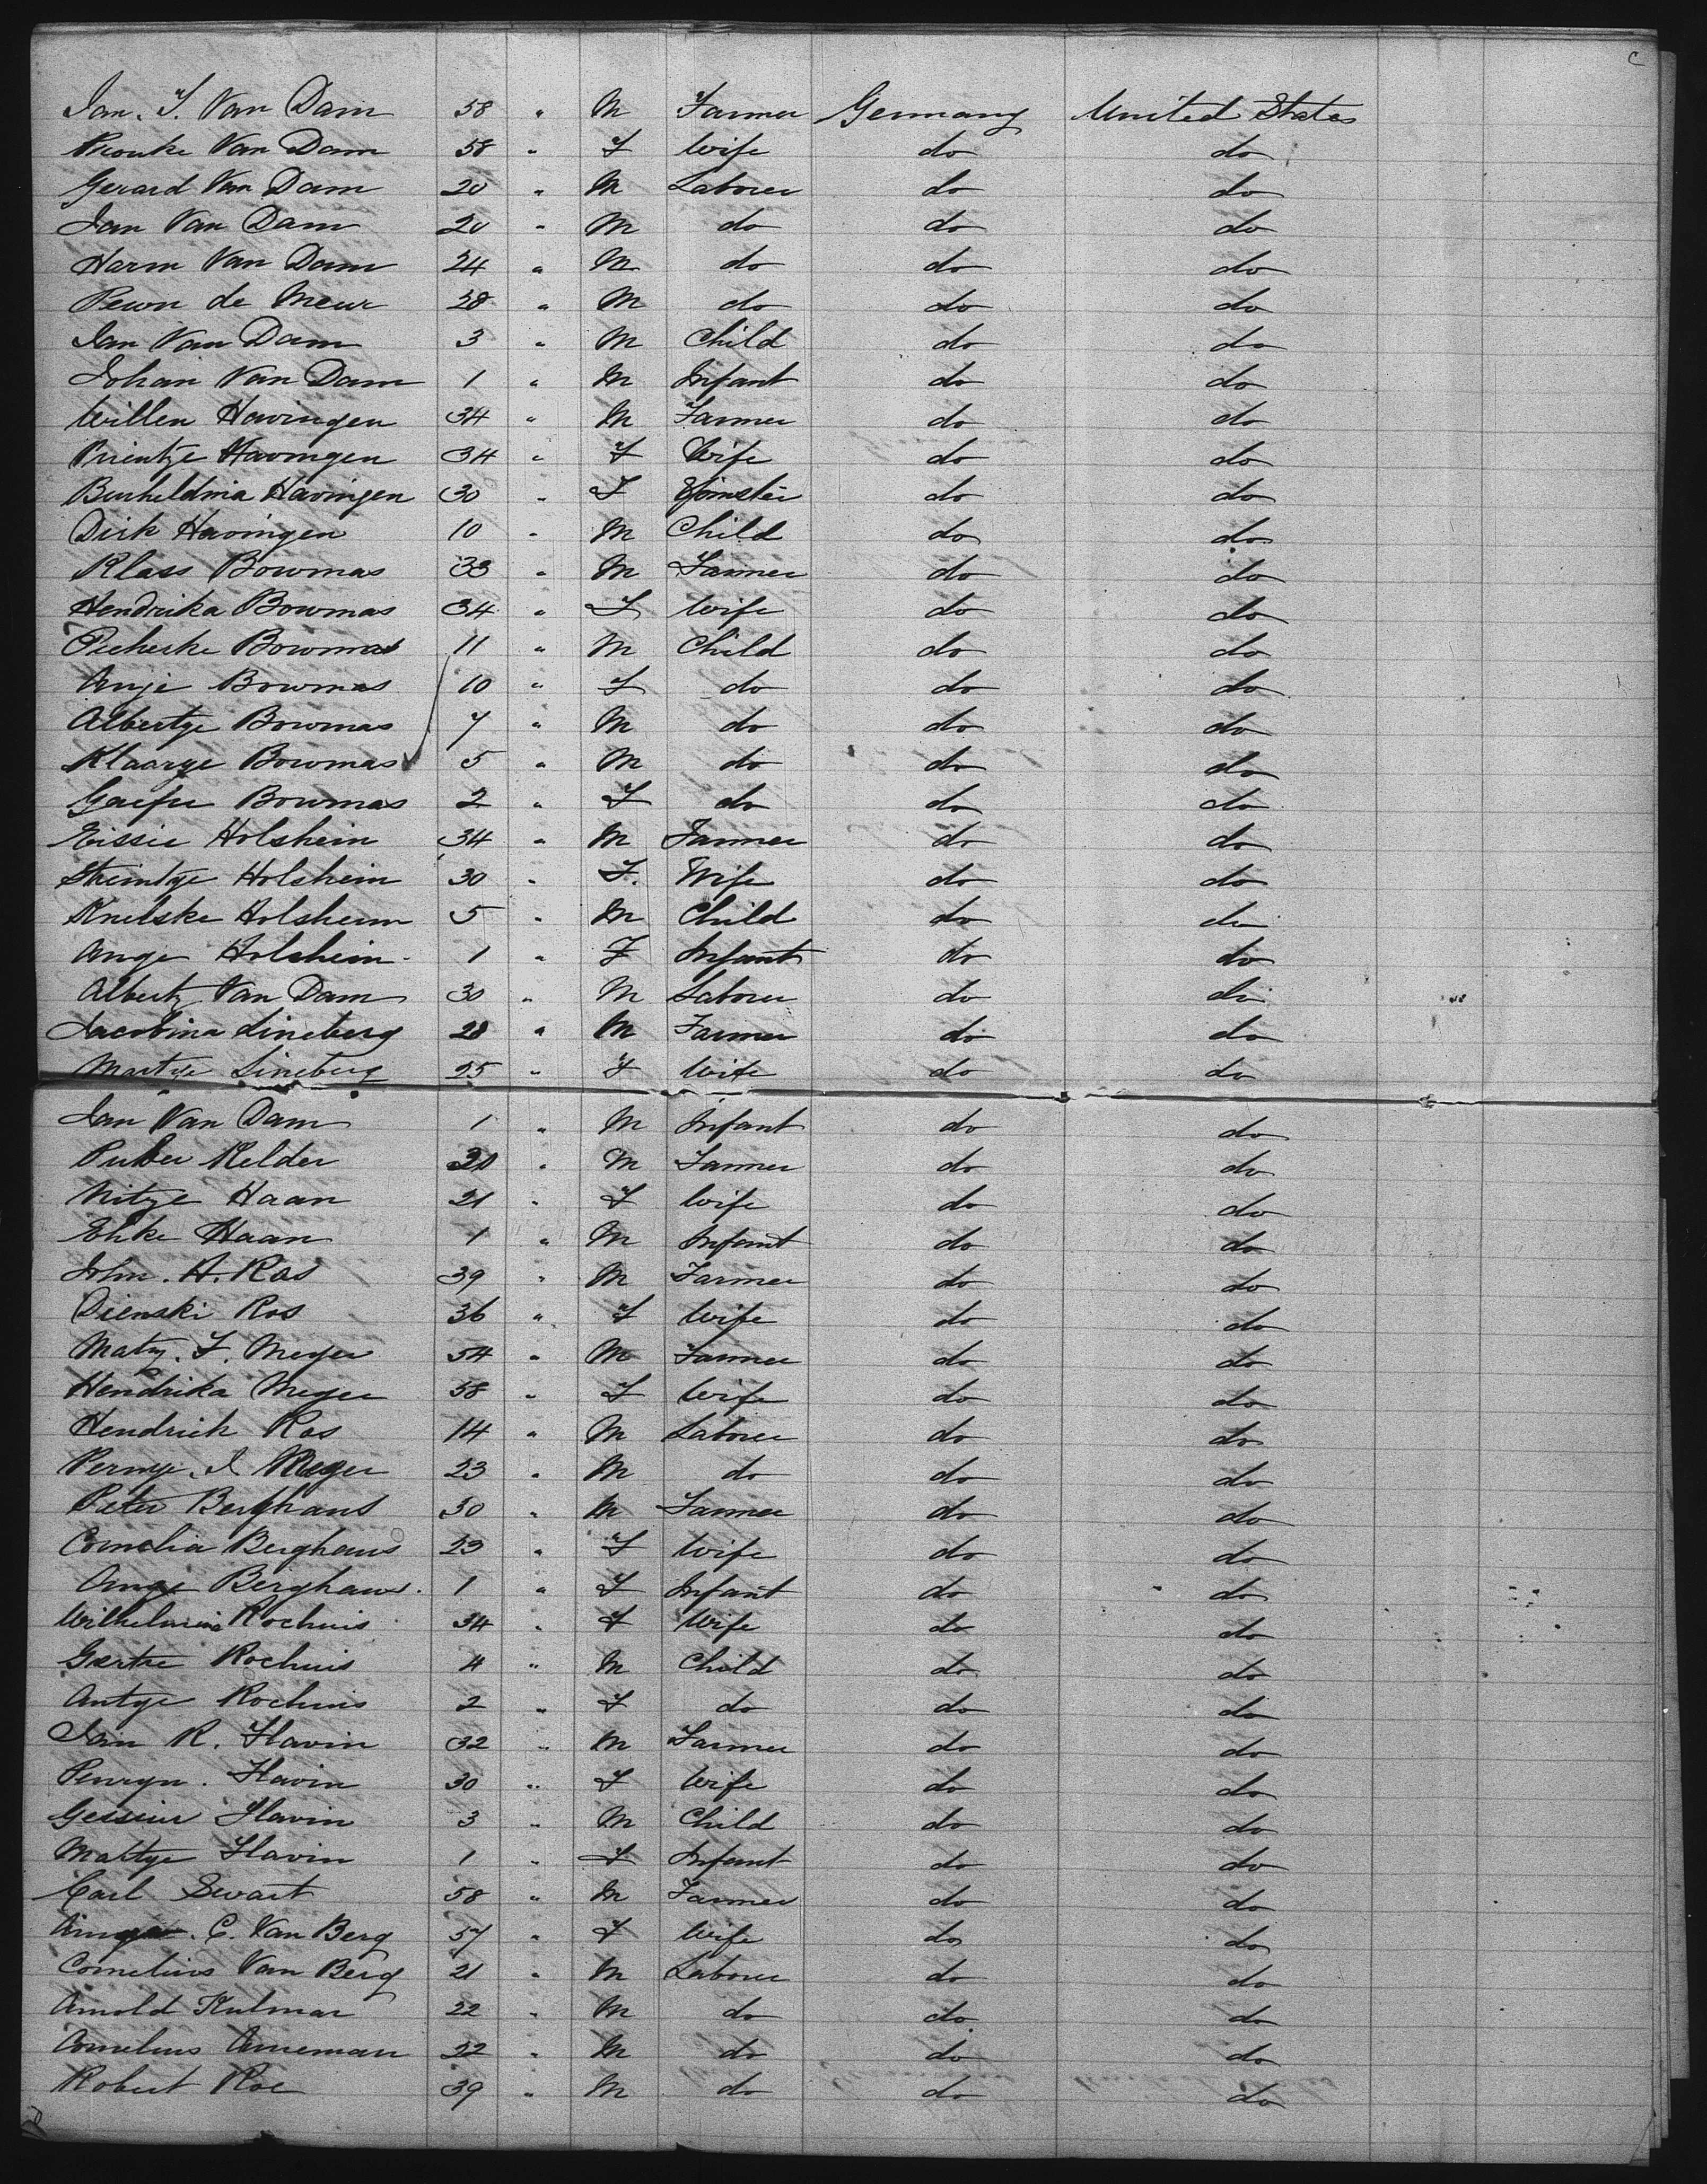 Jan. S. Van Dam 58 " M Farmer Germany United States
Rionke Van Dam 58 " F Wife do do
Gerard Van Dam 20 " M Laborer do do
Jan Van Dam 20 " M do do do
Harm Van Dam 24 " M do do do
Pewn de Meur 28 " M do do do
Jan Van Dam 3 " M Child do do
Johan Van Dam 1 " M Infant do do
Willen Havingen 34 " M Farmer do do
Prientje Havingen 34 " F Wife do do
Havingen 30 " F Spinster do do
Dirk Havingen 10 " M Child do do
Klass Bowmas 33 " M Farmer do do
Hendrika Bowmas 34 " F Wife do do
Pieheske Bowmas 11 " M Child do do
Anje Bowmas 10 " F do do do
Albertje Bowmas 7 " M do do do
Klaarge Bowmas 5 " M do do do
Bowmas 2 " F do do do
Eissie Holshein 34 " M Farmer do do
Steintje Holshein 30 " F. Wife do do
Knelske Holsheim 5 " M Child do do
Ange Holshein 1 " F Infant do do
Alberty Van Dam 30 " M Laborer do do
Jacobina Lineberg 28 " M Farmer do do
Martje Lineberg 25 " F Wife do do
Jan Van Dam 1 " M Infant do do
Kelder " M Farmer do do
Nitze Haan 21 " F Wife do do
Ehke Haan 1 " M Infant do do
John. H. Ras 39 " M Farmer do do
Dienski Ros 36 " F Wife do do
Maty. F. Meyer 54 " M Farmer do do
Hendrika Meyer 58 " F Wife do do
Hendrick Ros 14 " M Laborer do do
Meyer 23 " M do do do
Peter Berghaus 30 " M Farmer do do
Cornelia Berghaus 23 " F Wife do do
Ange Berghaus 1 " F Infant do do
Wilhelmina Rochuis 34 " F Wife do do
Gertie Rochuis 4 " M Child do do
Antje Rochuis 2 " F do do do
Jan R. Havin 32 " M Farmer do do
Penryn. Havin 30 " F Wife do do
Gessier Havin 3 " M Child do do
Mattye Havin 1 " F Infant do do
Carl Swart 58 " M Farmer do do
C. Van Berg 57 " F Wife do do
Cornelius Van Berg 21 " M Laborer do do
Arnold Kulman 22 " M do do do
Cornelius Anneman 22 " M do do do
Robert Roe 39 " M do do do